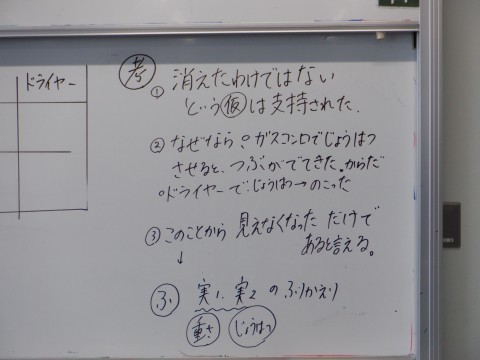 ドライヤー
考
① 消えたわけではない
という仮は支持された.
② なぜなら。ガスコンロでじょうはつ
させると、つぶがでてきた。からだ
・ドライヤーで:じょうはつ→のこった
③ このことから 見えなくなった だけで
あると言える。
↓
ふ 実1. 実2 のふりかえり
重さ じょうはつ